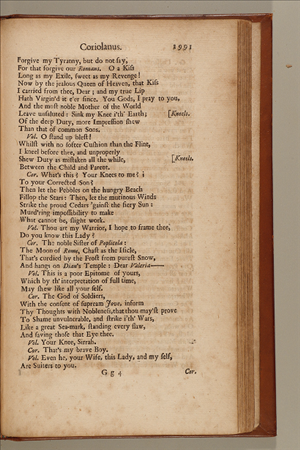 Coriolanus. 1991
Forgive my Tyranny, but do not say,
For that forgive our Romans. O a Kiss
Long as my Exile, sweet as my Revenge!
Now by the jealous Queen of Heaven, that Kiss
I carried from thee, Dear; and my true Lip
Hath Virgin'd it e'er since. You Gods, I pray to you,
And the most noble Mother of the World
Leave unsaluted: Sink my Knee i'th' Earth; [Kneels.
Of thy deep Duty, more Impression shew
Than that of common Sons.
Vol. O stand up blest!
Whilst with no softer Cushion than the Flint,
I kneel before thee, and unproperly
Shew Duty as mistaken all the while, [Kneels.
Between the Child and Parent.
Cor. What's this? Your Knees to me?
To your Corrected Son?
Then let the Pebbles on the hungry Beach
Fillop the Stars: Then, let the mutinous Winds
Strike the proud Cedars 'gainst the fiery Sun:
Murd'ring impossibility to make
What cannot be, slight work.
Vol. Thou art my Warrior, I hope to frame thee,
Do you know this Lady?
Cor. The noble Sister of Poplicola:
The Moon of Rome, Chast as the Isicle,
That's curdied by the Frost from purest Snow,
And hangs on Dian's Temple: Dear Valeria——
Vol. This is a poor Epitome of yours,
Which by th' interpretation of full time,
May shew like all your self.
Cor. The God of Soldiers,
With the consent of supream Jove, inform
Thy Thoughts with Nobleness, that thou may'st prove
To Shame unvulnerable, and strike i'th' Wars,
Like a great Sea-mark, standing every flaw,
And saving those that Eye thee.
Vol. Your Knee, Sirrah.
Cor. That's my brave Boy.
Vol. Even he, your Wife, this Lady, and my self,
Are Suitors to you.
G g 4 Cor.